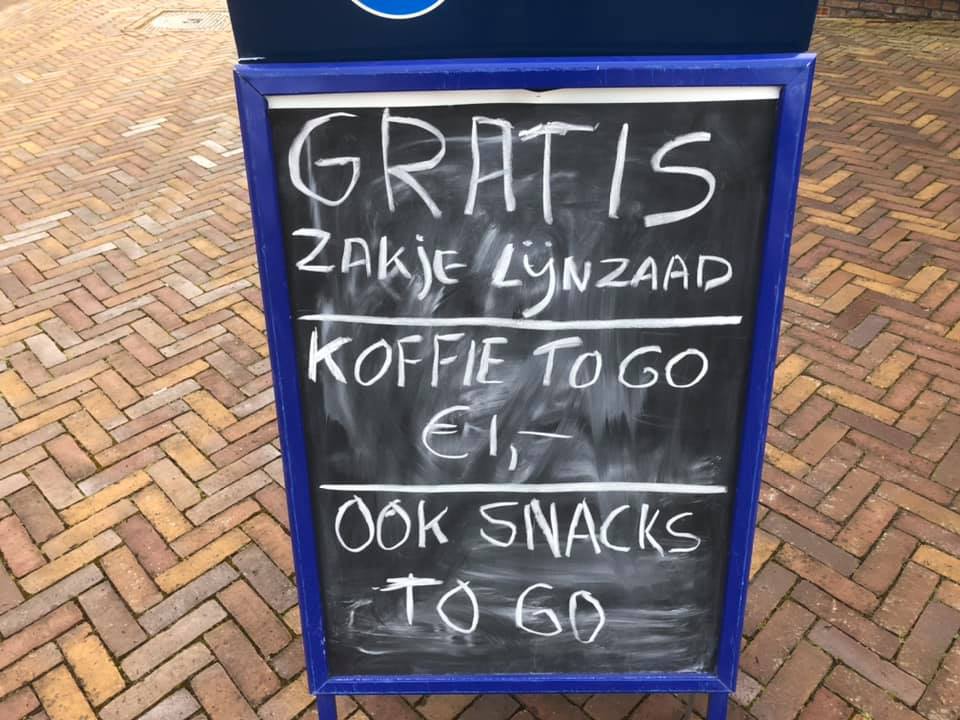 GRATIS
ZAKjE LijNZAAD
KOFFIE TO GO
€1,-
OOK SNACKS
TO GO